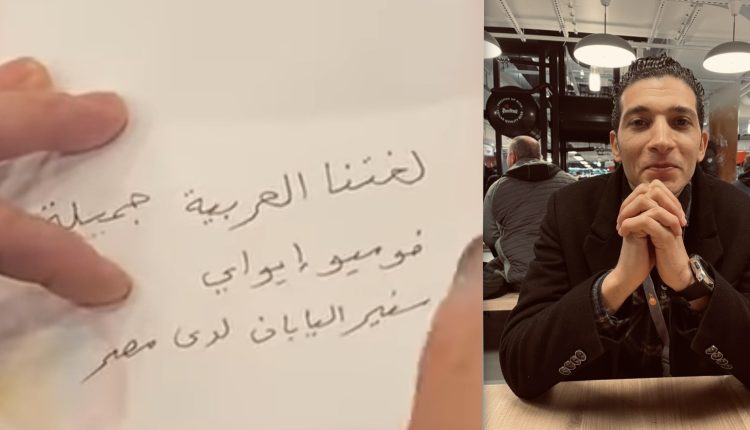 لغتنا العربية جميلة
فوميو إيواي
سفير اليابان لدى مصر